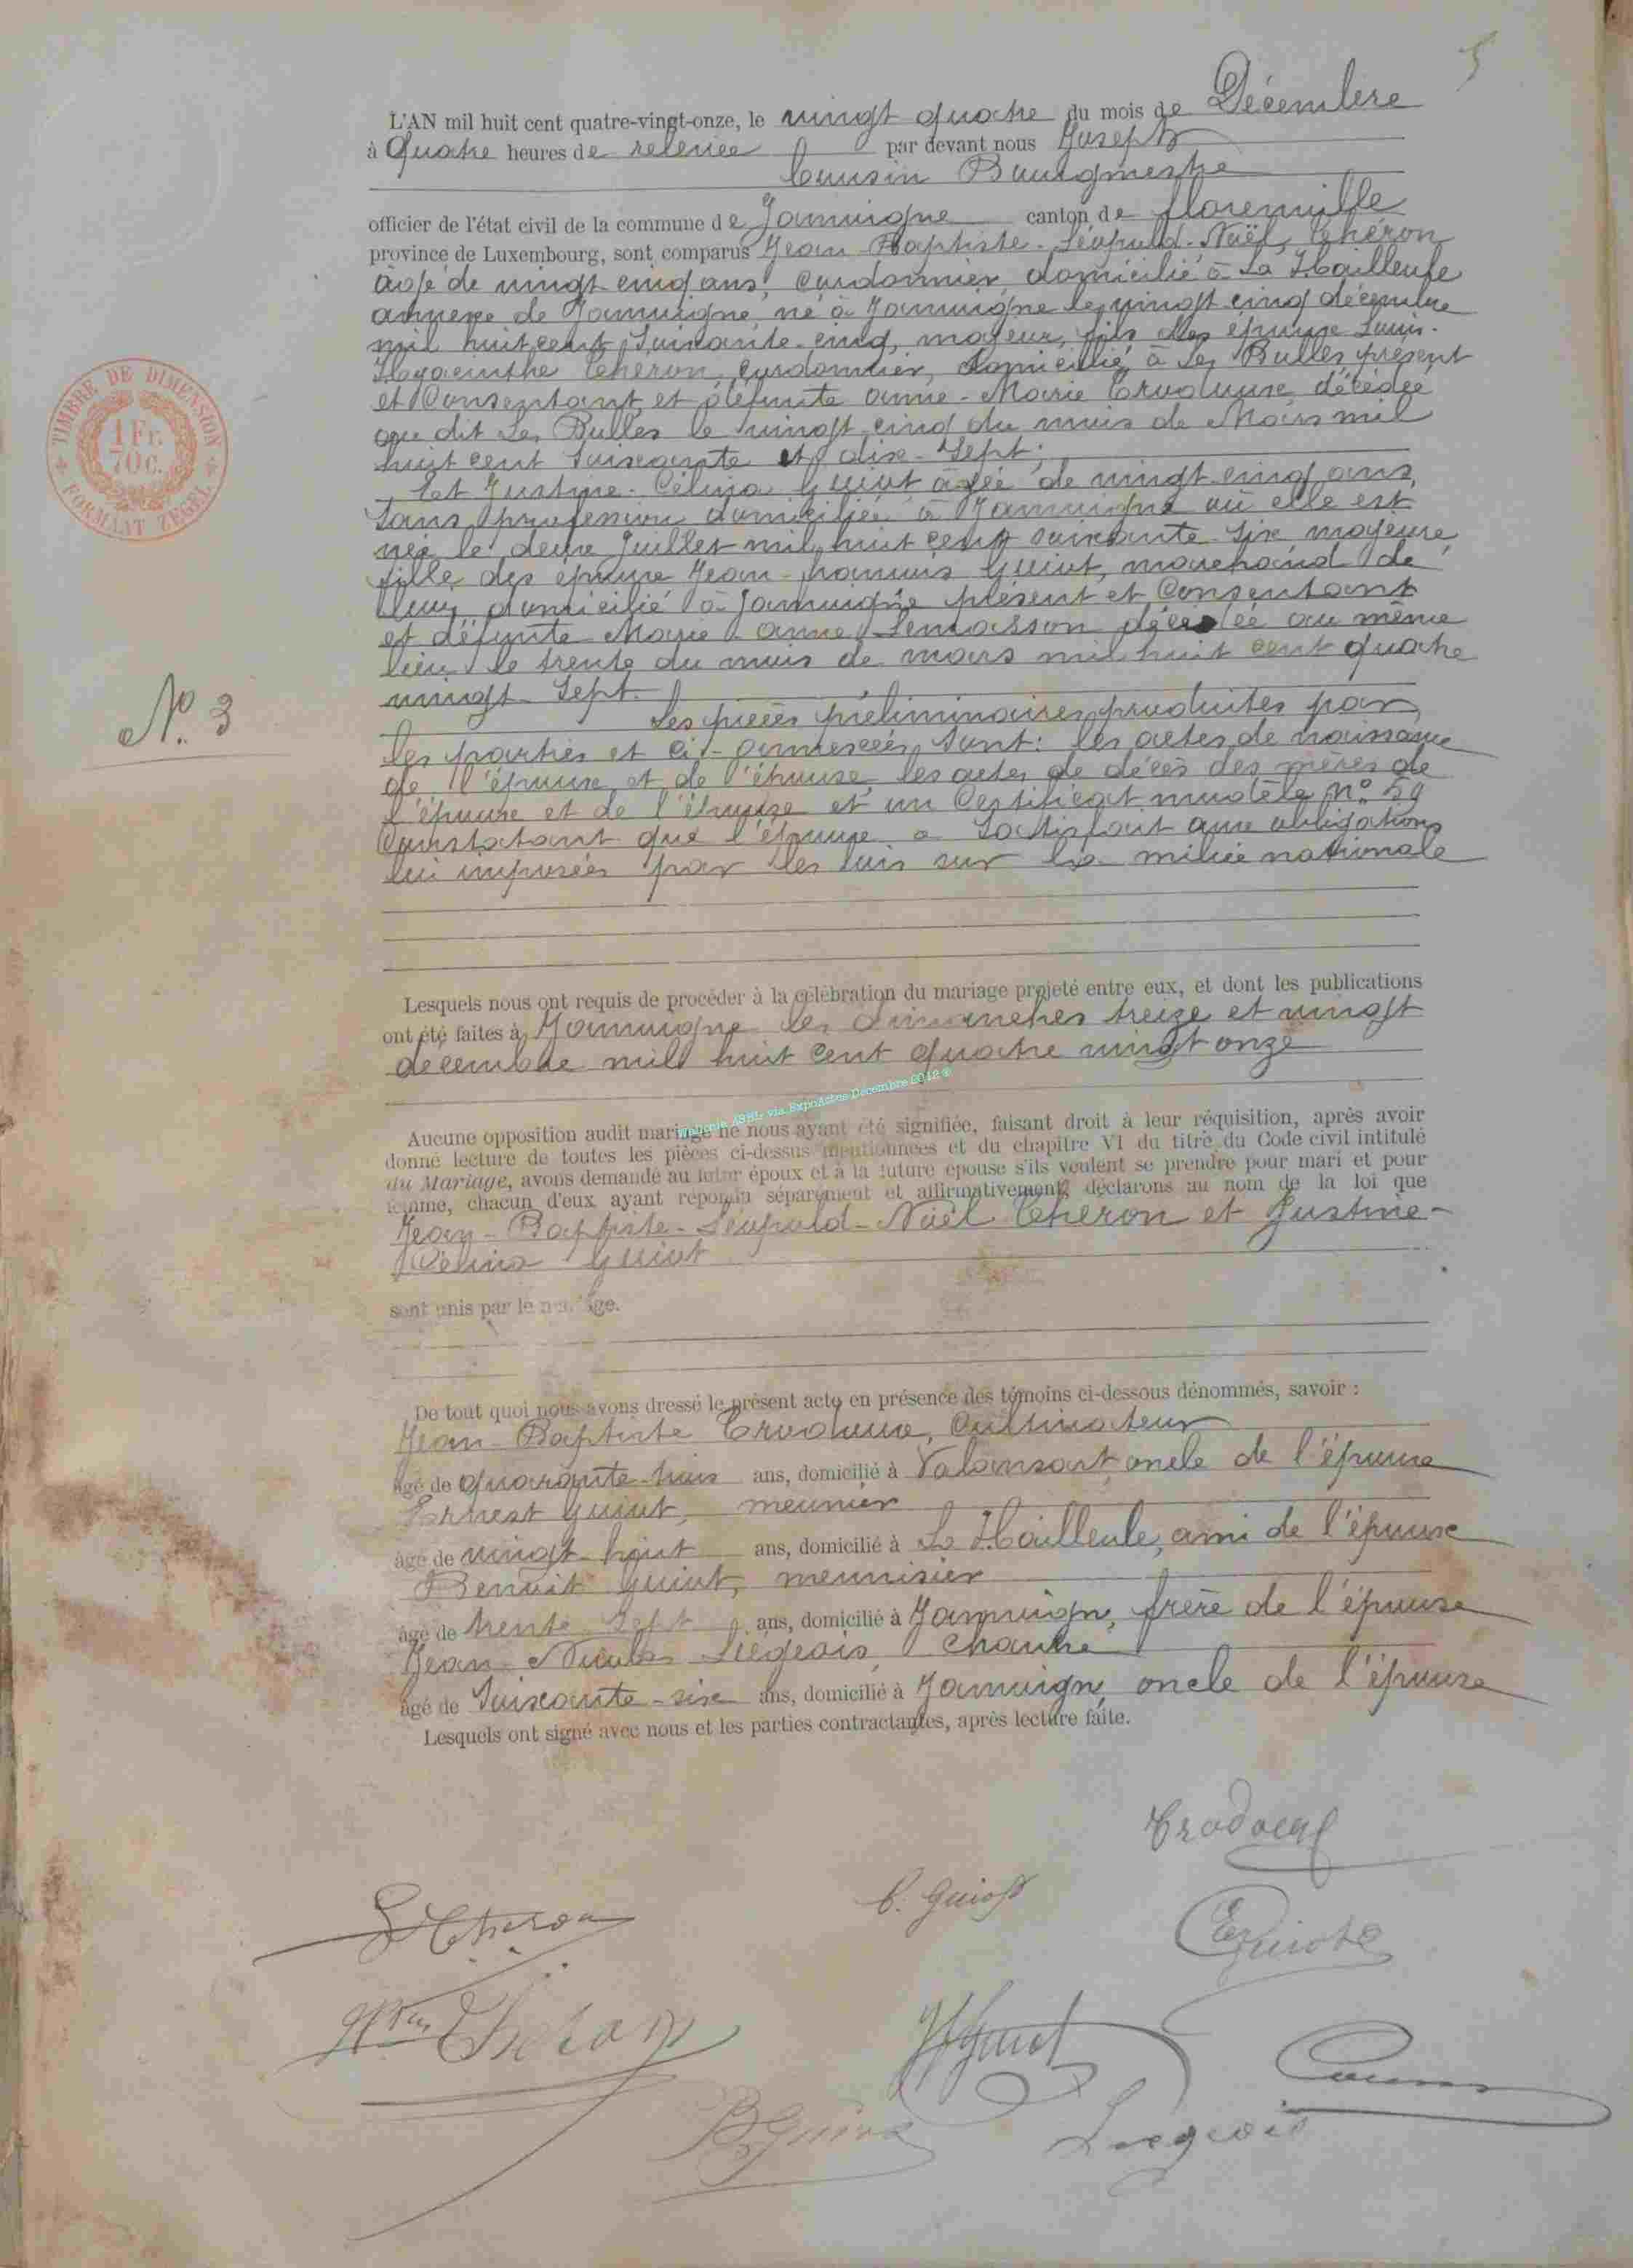 5
L'AN mil huit cent quatre-vingt-onze, le vingt quatre du mois de Décembre
à Quatre heures de relevée par devant nous Joseph
Cousin Bourgmestre
officier de l'état civil de la commune de Jamoigne canton de florenville
province de Luxembourg, sont comparus Jean-Baptiste-Léopold-Noël, Théron
âgé de vingt cinq ans, cordonnier, domicilié à La Hailleule
annexe de Jamoigne, né à Jamoigne le vingt cinq décembre
mil huit cent soixante-cinq, majeur, fils des époux Louis-
Hyacinthe Théron, cordonnier, domicilié à Les Bulles présent
et Consentant et défunte anne-Marie décédée
au dit Les Bulles le vingt cinq du mois de Mars mil
huit cent soixante et dix-sept;
Et Justine-Célina Guiot âgée de vingt cinq ans,
sans profession domiciliée à Jamoigne où elle est
née le deux Juillet mil huit cent soixante six majeure,
fille des époux Jean-françois Guiot, marchand de
domicilié à Jamoigne présent et Consentant
et défunte Marie anne Lemasson décédée au même
lieu le trente du mois de mars mil huit cent quatre
vingt-sept.
N° 3
Les pièces préliminaires produites par
les parties et ci-annexées sont: les actes de naissance
de l'époux et de l'épouse, les actes de décès des mères de
l'époux et de l'épouse et un Certificat modèle n°
Constatant que l'époux a satisfait aux obligations
lui imposées par les lois sur la milice nationale
TIMBRE DE DIMENSION
1 Fr.
70 c.
FORMAAT ZEGEL
Lesquels nous ont requis de procéder à la célébration du mariage projeté entre eux, et dont les publications
ont été faites à Jamoigne les dimanches treize et vingt
décembre mil huit cent quatre vingt onze
via ExpoActes Décembre 2012 ©
Aucune opposition audit mariage ne nous ayant été signifiée, faisant droit à leur réquisition, après avoir
donné lecture de toutes les pièces ci-dessus mentionnées et du chapitre VI du titre du Code civil intitulé
du Mariage, avons demandé au futur époux et à la future épouse s'ils veulent se prendre pour mari et pour
femme, chacun d'eux ayant répondu séparément et affirmativement, déclarons au nom de la loi que
Jean-Baptiste-Léopold-Noël Théron et Justine-
Célina Guiot
sont unis par le mariage.
De tout quoi nous avons dressé le présent acte en présence des témoins ci-dessous dénommés, savoir :
Jean-Baptiste Cultivateur
âgé de quarante-trois ans, domicilié à Valansart oncle de l'époux
Ernest Guiot, meunier
âgé de vingt-huit ans, domicilié à La Hailleule, ami de l'épouse
Benoit Guiot, menuisier
âgé de trente sept ans, domicilié à Jamoigne, frère de l'épouse
Jean-Nicolas Liégeois, Chantre
âgé de Soixante-six ans, domicilié à Jamoigne, oncle de l'épouse
Lesquels ont signé avec nous et les parties contractantes, après lecture faite.
C. Guiot
L Theron
E Guiot
Théron
JF Guiot
Cousin
B Guiot
Liegeois